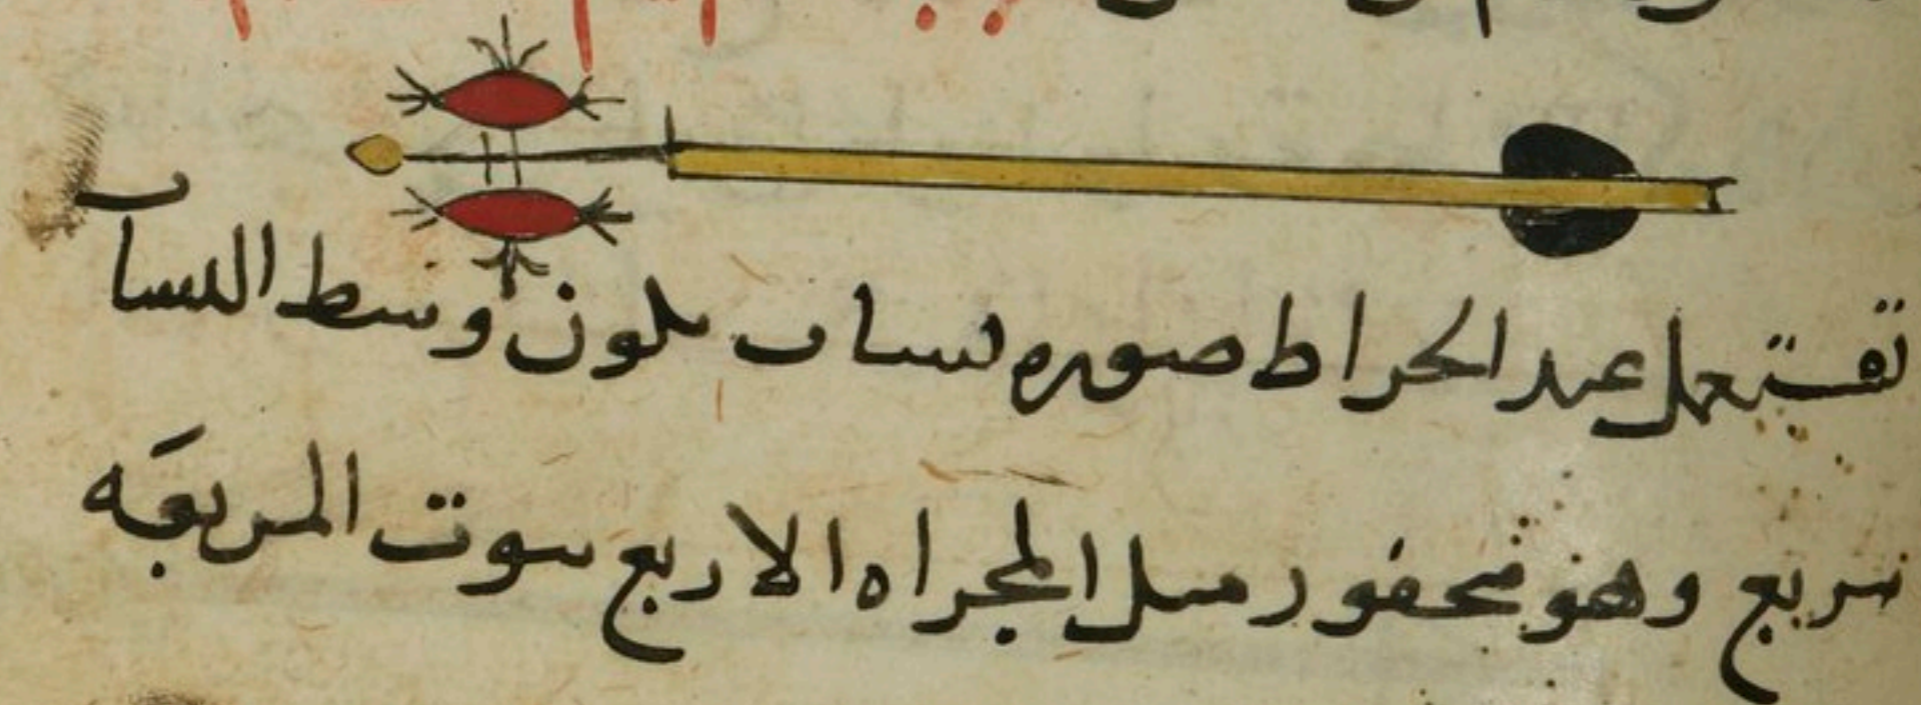 تستعمل عند الخراط صوره نساب يكون وسط النساب
مربع وهو محفور مثل المجراه الاربع بيوت المربعه